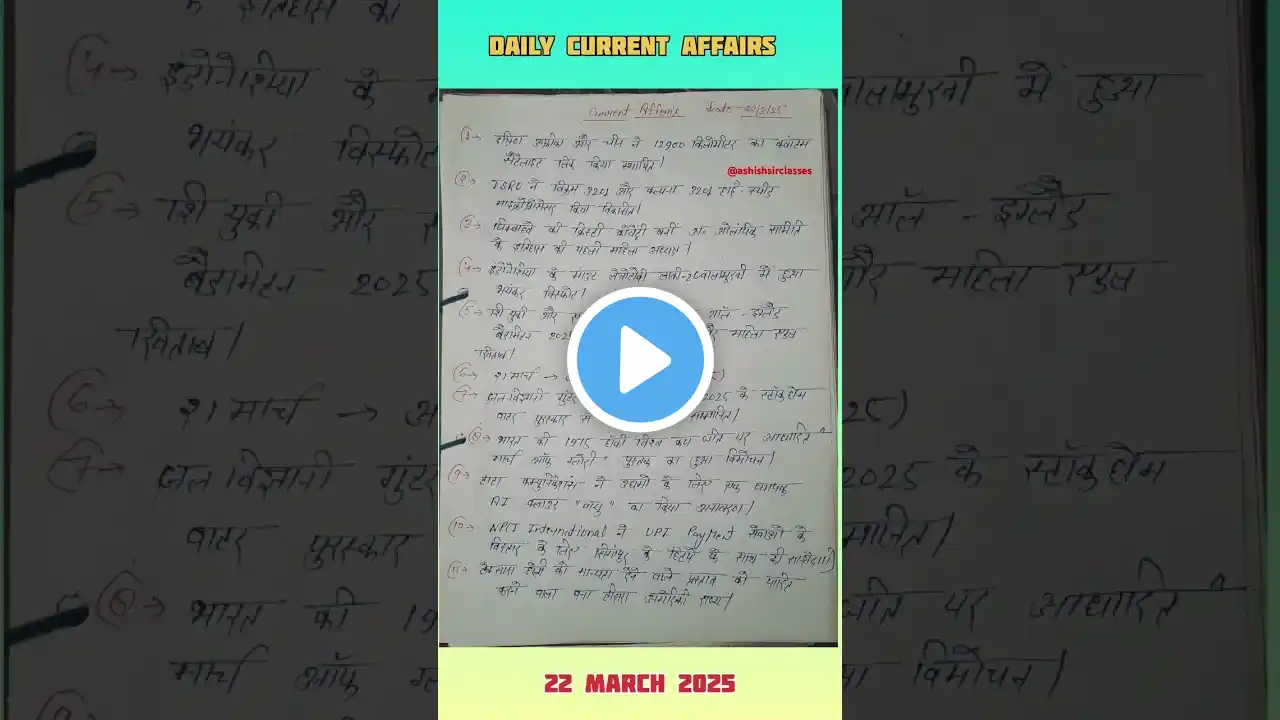 DAILY CURRENT AFFAIRS
Current Affairs Date - 22/3/25
@ashishsirclasses
①→ दक्षिण अफ्रीका और चीन ने 12900 किलोमीटर का क्वांटम
सैटेलाइट लिंक किया स्थापित।
②→ ISRO ने विक्रम 3201 और कल्पना 3201 हाई-स्पीड
माइक्रोप्रोसेसर किया विकसित।
③→ जिम्बाब्वे की क्रिस्टी कोवेंट्री बनीं अंत० ओलंपिक समिति
के इतिहास की पहली महिला अध्यक्ष।
④→ इंडोनेशिया के माउंट लेवोटोबी लाकी-लाकी ज्वालामुखी में हुआ
भयंकर विस्फोट।
⑤→ शि युकी और ऑल - इंग्लैंड
बैडमिंटन 2025 और महिला एकल
खिताब।
⑥→ 21 मार्च →
⑦→ जल विज्ञानी गुंटर 2025 के स्टॉकहोम
वाटर पुरस्कार से सम्मानित।
⑧→ भारत की 1975 हॉकी विश्व कप जीत पर आधारित
मार्च ऑफ ग्लोरी पुस्तक का हुआ विमोचन।
⑨→ टाटा कम्युनिकेशंस ने उद्यमों के लिए एक व्यापक
AI क्लाउड "वायु" का किया अनावरण।
⑩→ NPCI International ने UPI Payment सेवाओं के
विस्तार के लिए सिंगापुर के हिटपे के साथ की साझेदारी
⑪→ को मान्यता देने वाले प्रस्ताव को पारित
करने वाला बना तीसरा अमेरिकी राज्य।
22 MARCH 2025